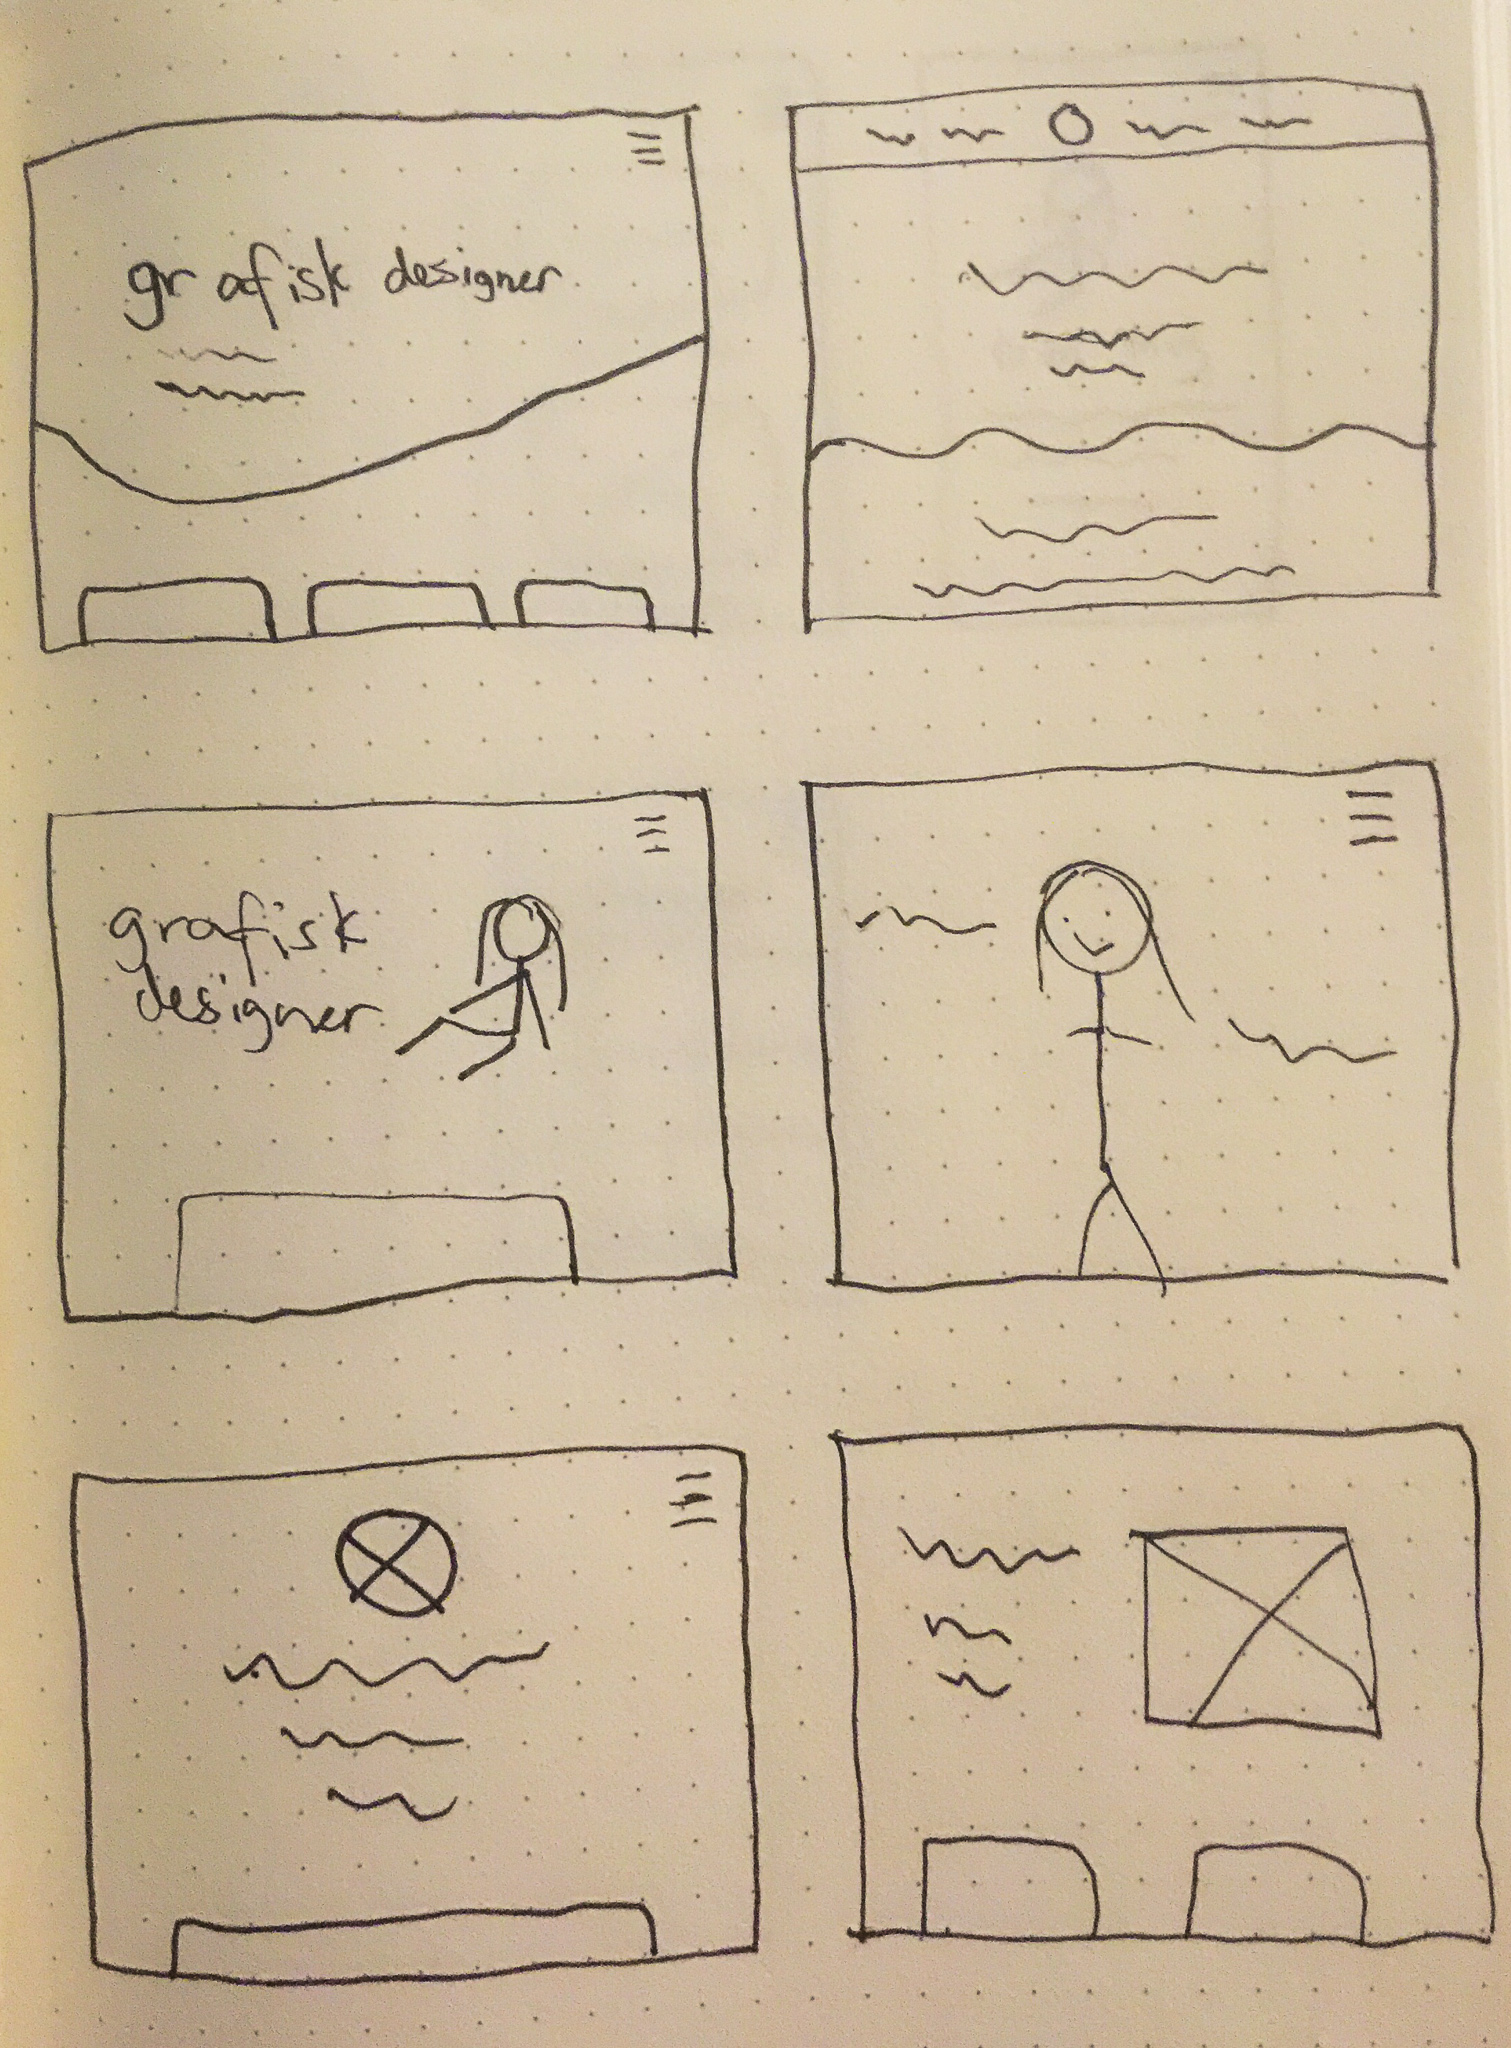 grafisk designer
grafisk
designer